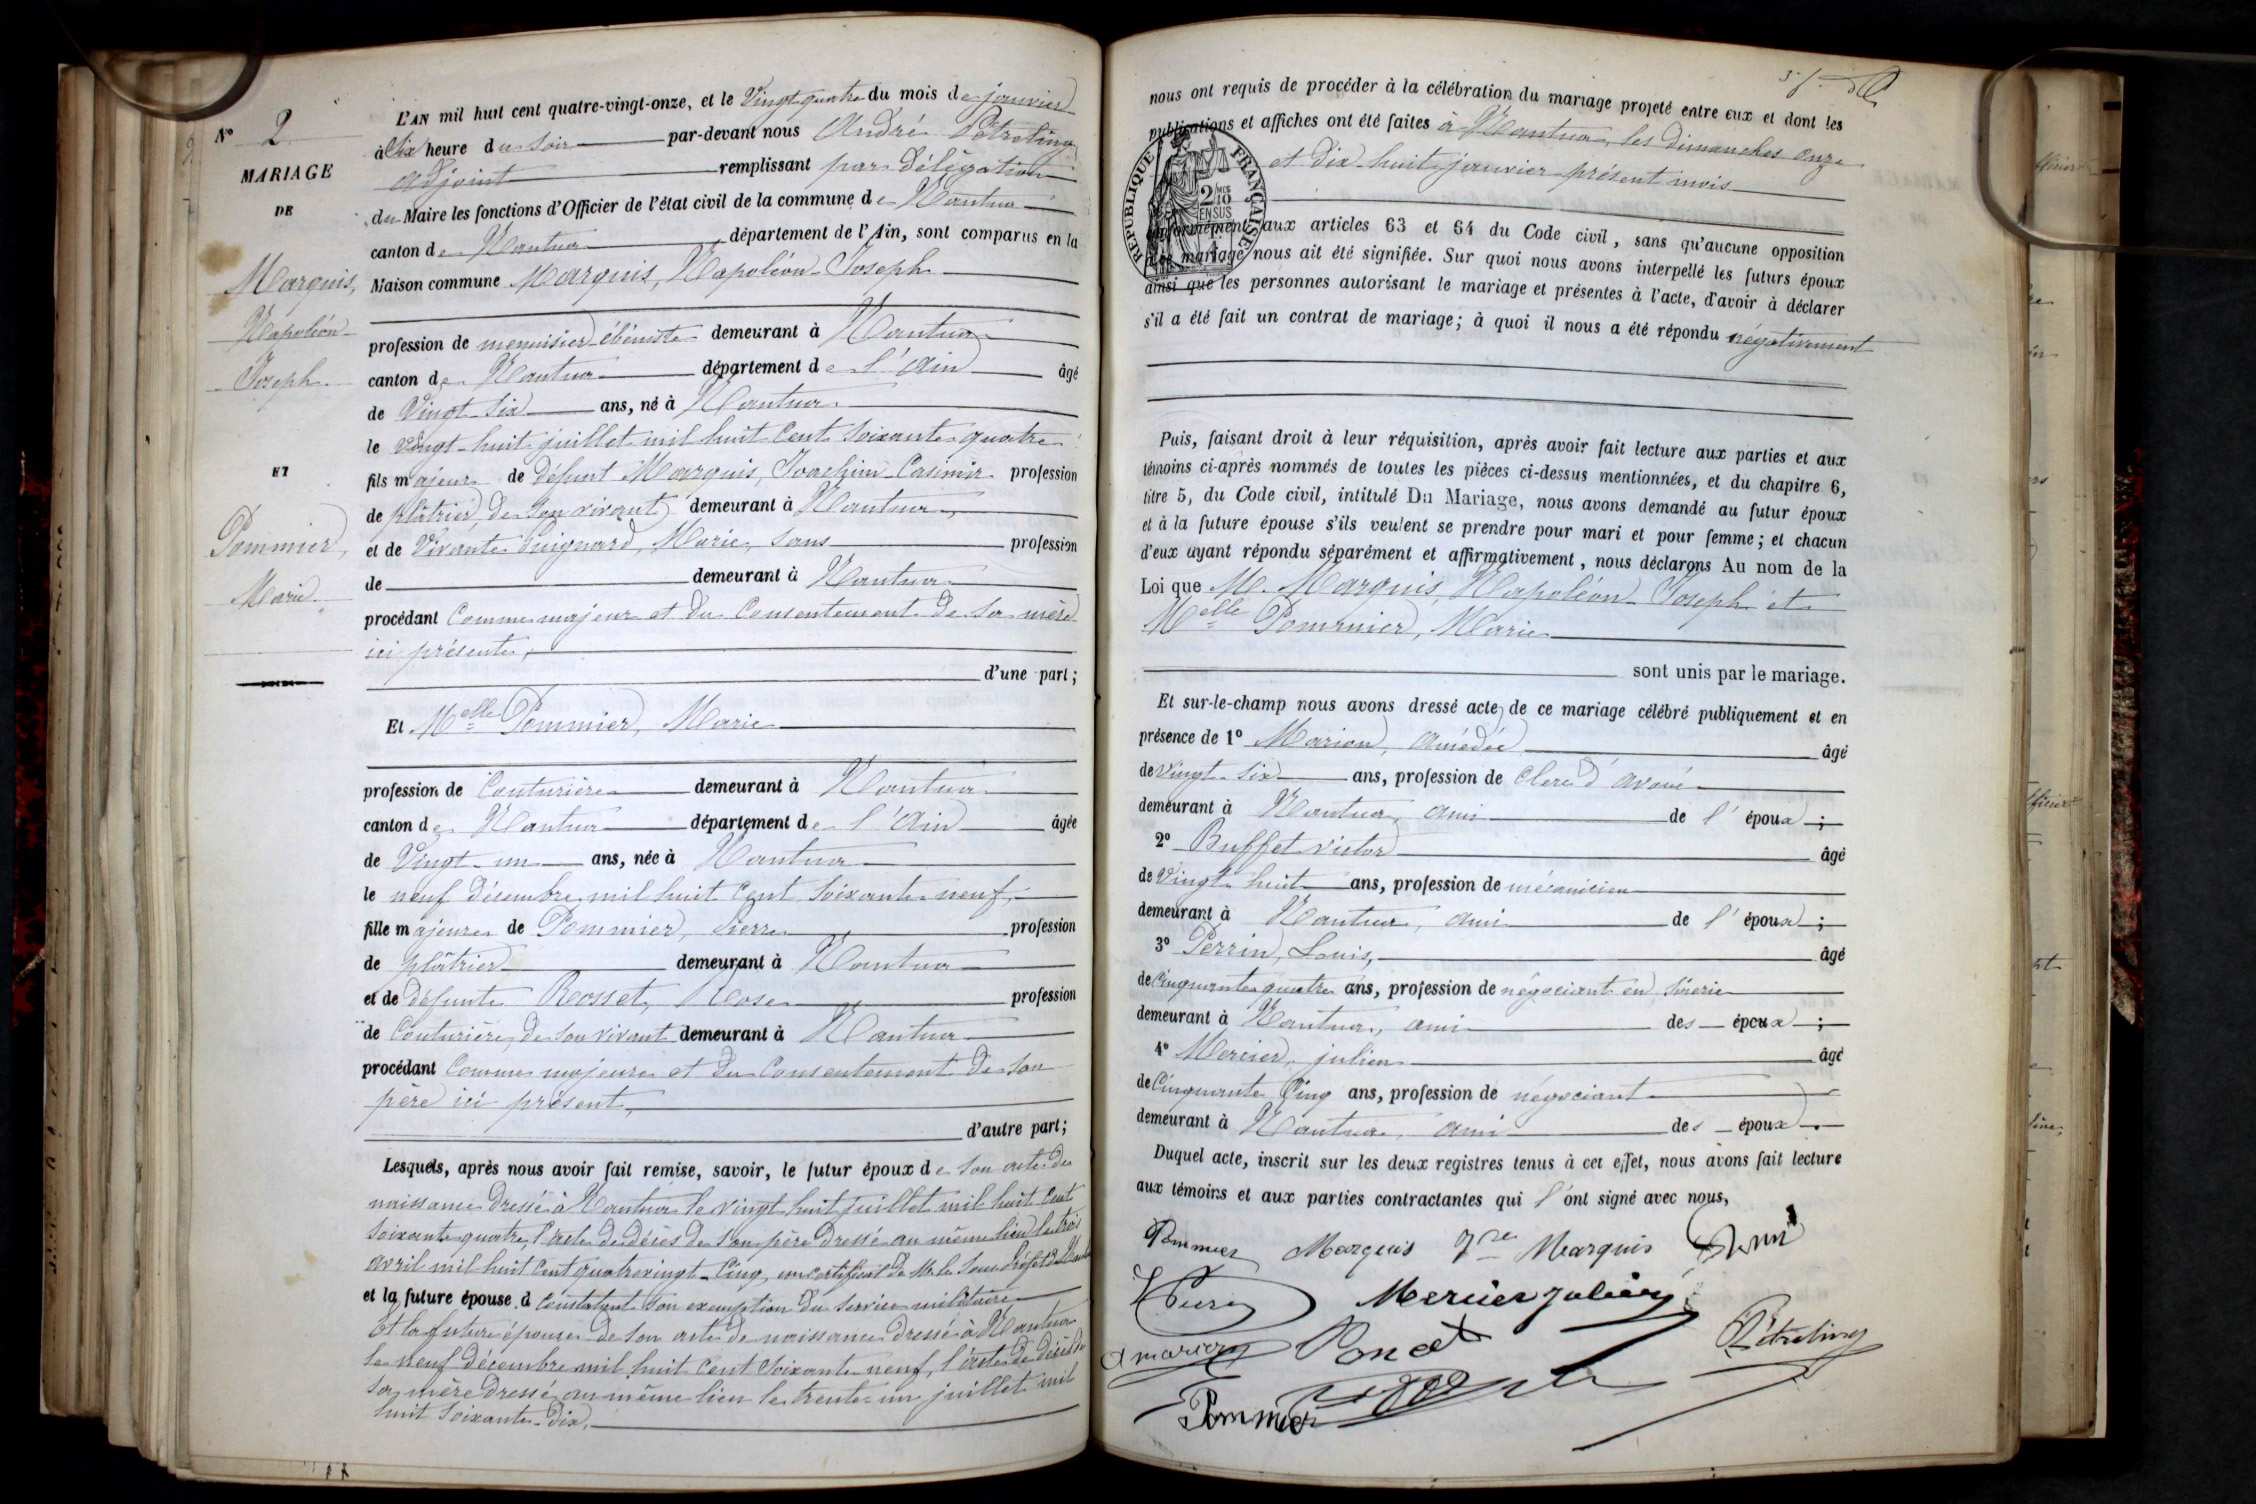 N° 2
MARIAGE
DE
Marquis,
Napoléon
Joseph
ET
Pommier,
Marie
L'AN mil huit cent quatre-vingt-onze, et le Vingt quatre du mois de janvier
à Six heure du soir par-devant nous André Pétreling
adjoint remplissant par délégation
du Maire les fonctions d'Officier de l'état civil de la commune de Nantua
canton de Nantua département de l'Ain, sont comparus en la
Maison commune Marquis, Napoléon Joseph
profession de menuisier ébéniste demeurant à Nantua
canton de Nantua département de l'Ain âgé
de Vingt six ans, né à Nantua
le vingt-huit juillet mil huit cent soixante quatre
fils majeur de défunt Marquis, Joachim Casimir profession
de plâtrier, de son vivant demeurant à Nantua,
et de Vivante Guignard, Marie, sans profession
de demeurant à Nantua
procédant Comme majeur et du Consentement de sa mère
ici présente,
d'une part;
Et Melle Pommier, Marie
profession de Couturière demeurant à Nantua
canton de Nantua département de l'Ain âgée
de Vingt-un ans, née à Nantua
le neuf décembre mil huit cent soixante neuf,
fille majeure de Pommier, Pierre profession
de plâtrier demeurant à Nantua
et de défunte Rosset, Rose profession
de Couturière, de son vivant demeurant à Nantua
procédant Comme majeure et du Consentement de son
père ici présent,
d'autre part;
Lesquels, après nous avoir fait remise, savoir, le futur époux de son acte de
naissance dressé à Nantua le vingt huit juillet mil huit cent
soixante quatre, l'acte de décès de son père dressé au même lieu le trois
avril mil huit cent quatrevingt-cinq, un certificat de Mr le Sous Préfet de Nantua
et la future épouse d constatant son exemption du service militaire
Et la future épouse de son acte de naissance dressé à Nantua
le neuf décembre mil huit cent soixante neuf, l'acte de décès de
sa mère dressé au même lieu le trente-un juillet mil
huit soixante-dix,
nous ont requis de procéder à la célébration du mariage projeté entre eux et dont les
publications et affiches ont été faites à Nantua, les dimanches onze
et dix huit janvier présent mois
RÉPUBLIQUE FRANÇAISE
2 MES
10
EN SUS
conformément aux articles 63 et 64 du Code civil, sans qu'aucune opposition
mariage nous ait été signifiée. Sur quoi nous avons interpellé les futurs époux
ainsi que les personnes autorisant le mariage et présentes à l'acte, d'avoir à déclarer
s'il a été fait un contrat de mariage; à quoi il nous a été répondu négativement
Puis, faisant droit à leur réquisition, après avoir fait lecture aux parties et aux
témoins ci-après nommés de toutes les pièces ci-dessus mentionnées, et du chapitre 6,
titre 5, du Code civil, intitulé Du Mariage, nous avons demandé au futur époux
et à la future épouse s'ils veulent se prendre pour mari et pour femme; et chacun
d'eux ayant répondu séparément et affirmativement, nous déclarons Au nom de la
Loi que M. Marquis, Napoléon Joseph et
Melle Pommier, Marie
sont unis par le mariage.
Et sur-le-champ nous avons dressé acte de ce mariage célébré publiquement et en
présence de 1° Marion, Amédée âgé
de vingt-six ans, profession de clerc d'avoué
demeurant à Nantua, ami de l'époux;
2° Buffet Victor âgé
de Vingt huit ans, profession de mécanicien
demeurant à Nantua, ami de l'époux;
3° Perrin, Louis, âgé
de cinquante quatre ans, profession de négociant en sciérie
demeurant à Nantua, ami des époux;
4° Mercier, julien âgé
de Cinquante Cinq ans, profession de négociant
demeurant à Nantua, ami des époux.
Duquel acte, inscrit sur les deux registres tenus à cet effet, nous avons fait lecture
aux témoins et aux parties contractantes qui l'ont signé avec nous,
Pommier Marquis Marquis
Mercier Julien
A marion Poncet Pétreling
Pommier